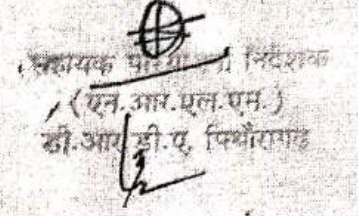 सहायक परियोजना निदेशक
(एन.आर.एल.एम.)
डी.आर.डी.ए. पिथौरागढ़